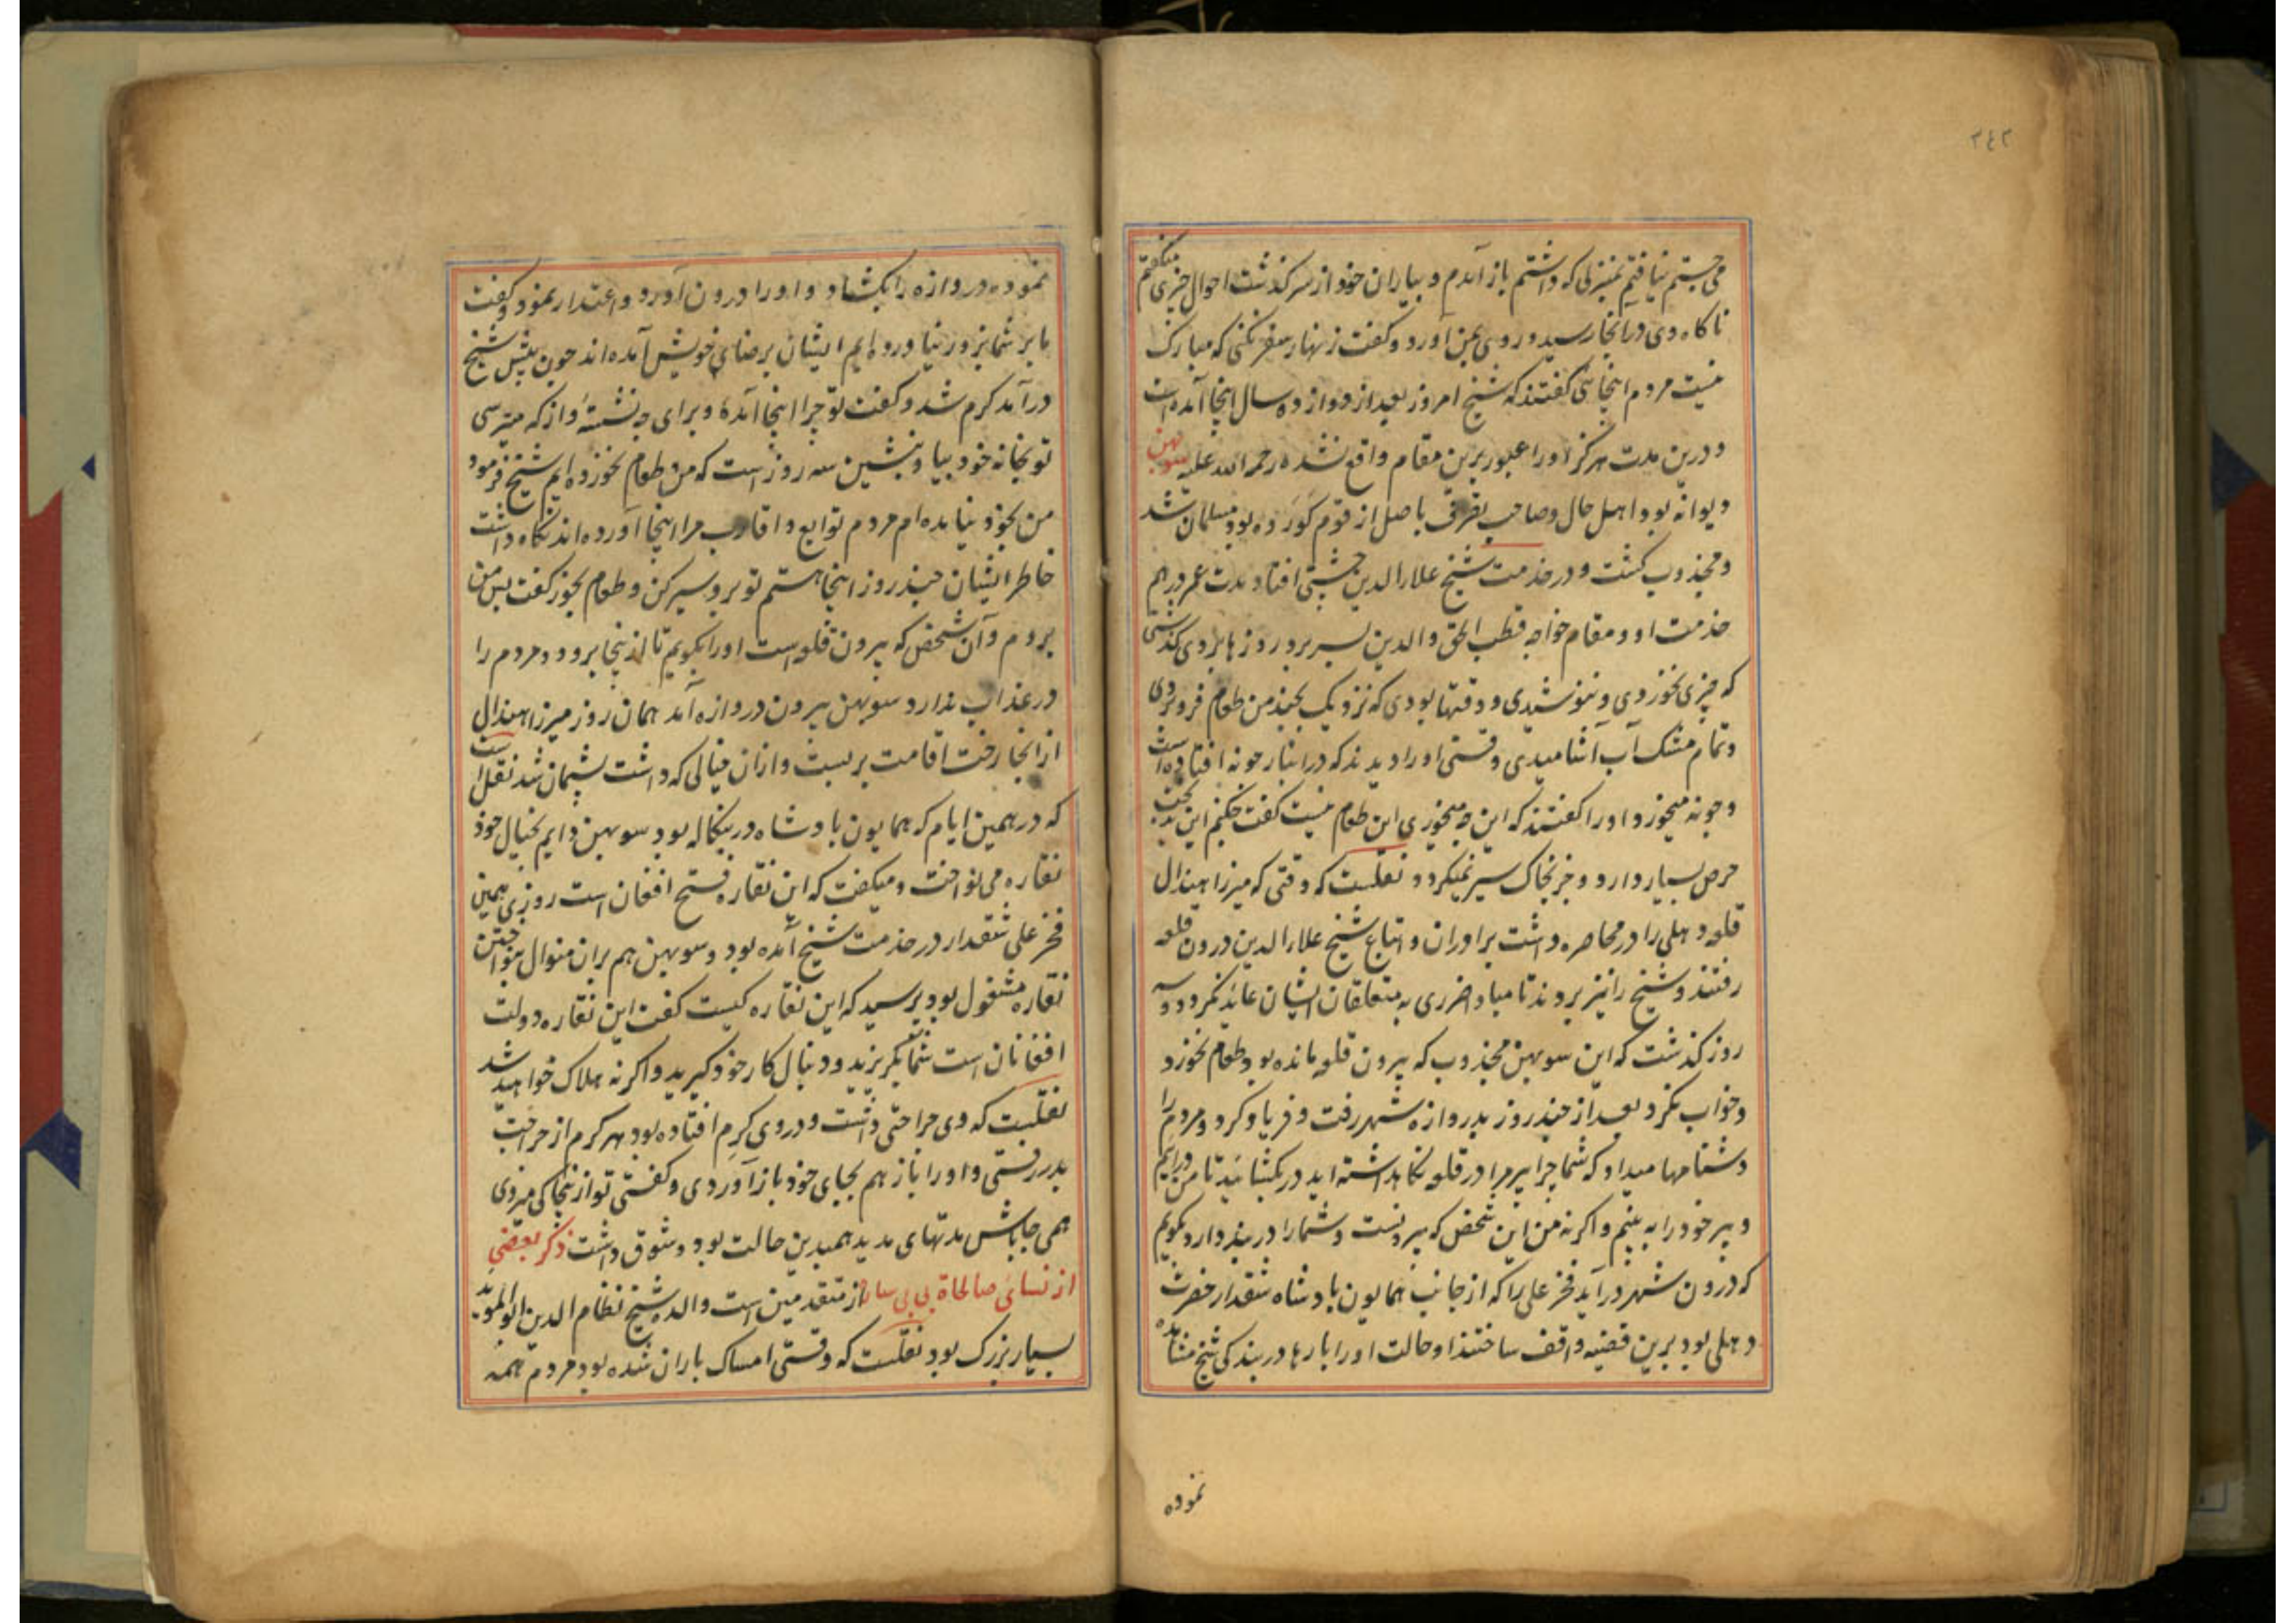 ٢٤٢
می جستم نیافتم بمنزلی که داشتم باز آمدم و بیاران خود از سرگذشت احوال چیزی میگفتم
ناکاه وی در آنجا رسید و روی بمن آورد و کفت زنهار سفر نکنی که مبارک
نیست مردم اینجائی کفتند که شیخ امروز بعد از دوازده سال اینجا آمده است
و درین مدت هرکز اورا عبور برین مقام واقع نشده رحمه الله علیه سوبهن
دیوانه بود اهل حال و صاحب تصرف باصل از قوم بود مسلمان شد
و مجذوب کشت و در خدمت شیخ علاء الدین چشتی افتاد مدت عمر در هم
خدمت او و مقام خواجه قطب الحق والدین بسر برد روزها بروی کذشتی
که چیزی نخوردی و ننوشیدی و وقتها بودی که نزدیک بچند من طعام فرو بردی
و تمام مشک آب آشامیدی وقتی اورا دیدند که در انبار چونه افتاده است
و چونه میخورد اورا کفتند که این چه میخوری این طعام نیست کفت چکنم این بدبخت
حرص بسیار دارد و جز بخاک سیر نمیکردد نقلست که وقتی که میرزا هندال
قلعه دهلی را در محاصره داشت برادران و اتباع شیخ علاء الدین درون قلعه
رفتند و شیخ را نیز بردند تا مبادا ضرری به متعلقان ایشان عاید نکردد دو سه
روز کذشت که این سوبهن مجذوب که بیرون قلعه مانده بود طعام نخورد
و خواب نکرد بعد از چند روز بدروازه شهر رفت و فریاد کرد و مردم را
دشنامها میداد که شما چرا پیر مرا در قلعه نکاهداشته اید در بکشائید تا من درایم
و پیر خود را به بینم و اکر نه من این شخص که بیرونست و شما را در بند دارد بکویم
که درون شهر در آید فخر علی را که از جانب همایون بادشاه شقدار حضرت
دهلی بود برین قضیه واقف ساختند او حالت اورا بارها در بندکی شیخ مشاهده
نموده
نموده دروازه را بکشاد و اورا درون آورد و اعتذار نمود و کفت
ما بر شما بزور نیاورده ایم ایشان برضای خویش آمده اند چون پیش شیخ
درآمد کرم شد و کفت تو چرا اینجا آمدهٔ و برای چه نشستهٔ و از که میترسی
تو بخانه خود بیا و بنشین سه روز است که من طعام نخورده ایم شیخ فرمود
من بخود نیامده ام مردم توابع و اقارب مرا اینجا آورده اند نکاه داشت
خاطر ایشان چند روز اینجا هستم تو برو سیر کن و طعام بخور کفت پس من
بروم و آن شخص که بیرون قلعه است اورا بکویم تا از ینجا برود و مردم را
در عذاب ندارد سوبهن بیرون دروازه آمد همان روز میرزا هندال
از انجا رخت اقامت بربست و ازان خیالی که داشت پشیمان شد نقل است
که در همین ایام که همایون بادشاه در بنکاله بود سوبهن دایم بخیال خود
نقاره می نواخت و میکفت که این نقاره فتح افغان است روزی همین
فخر علی شقدار در خدمت شیخ آمده بود و سوبهن هم بران منوال بنواختن
نقاره مشغول بود پرسید که این نقاره کیست کفت این نقاره دولت
افغانان است شما بکریزید و دنبال کار خود کیرید و اکر نه هلاک خواهید شد
نقلست که وی جراحتی داشت و در وی کرم افتاده بود هر کرم از جراحت
بدر رفتی و اورا باز هم بجای خود باز آوردی و کفتی تو از ینجا کی میروی
همی جا باش مدتهای مدید همبدین حالت بود و شوق داشت ذکر بعضی
از نسای صالحاة بی بی سارا از متقدمین است والده شیخ نظام الدین ابوالموید
بسیار بزرک بود نقلست که وقتی امساک باران شده بود مردم همه